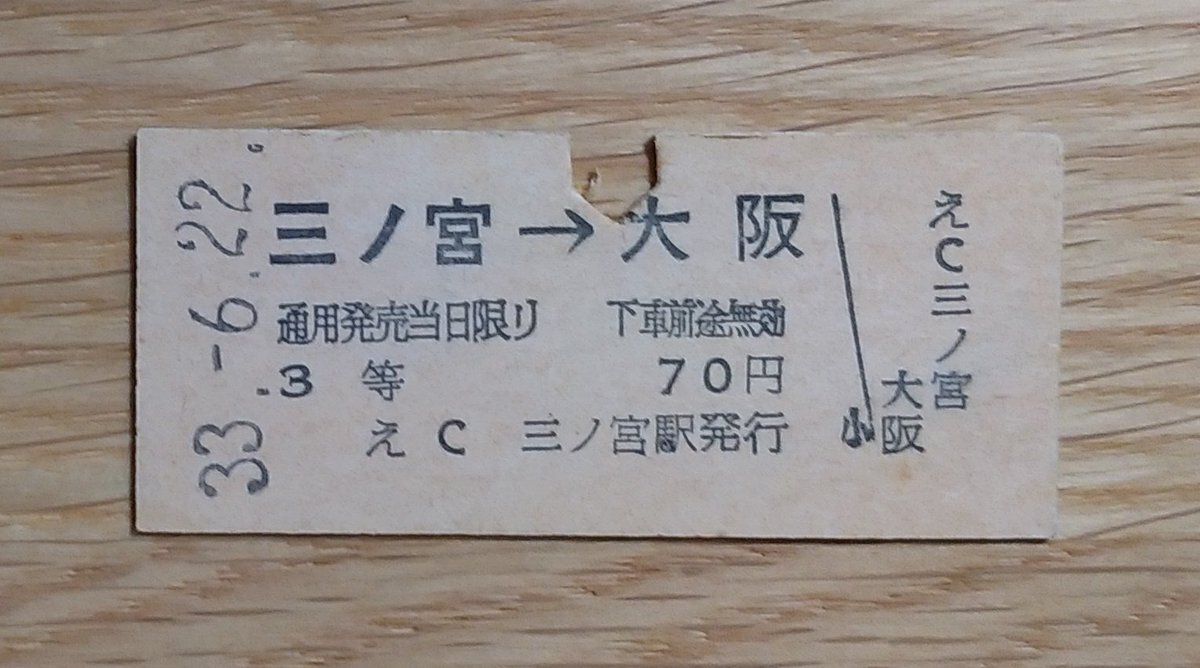 33.-6.22.
三ノ宮→大阪
通用発売当日限り 下車前途無効
3等 70円
えC 三ノ宮駅発行
えC三ノ宮
大阪
小